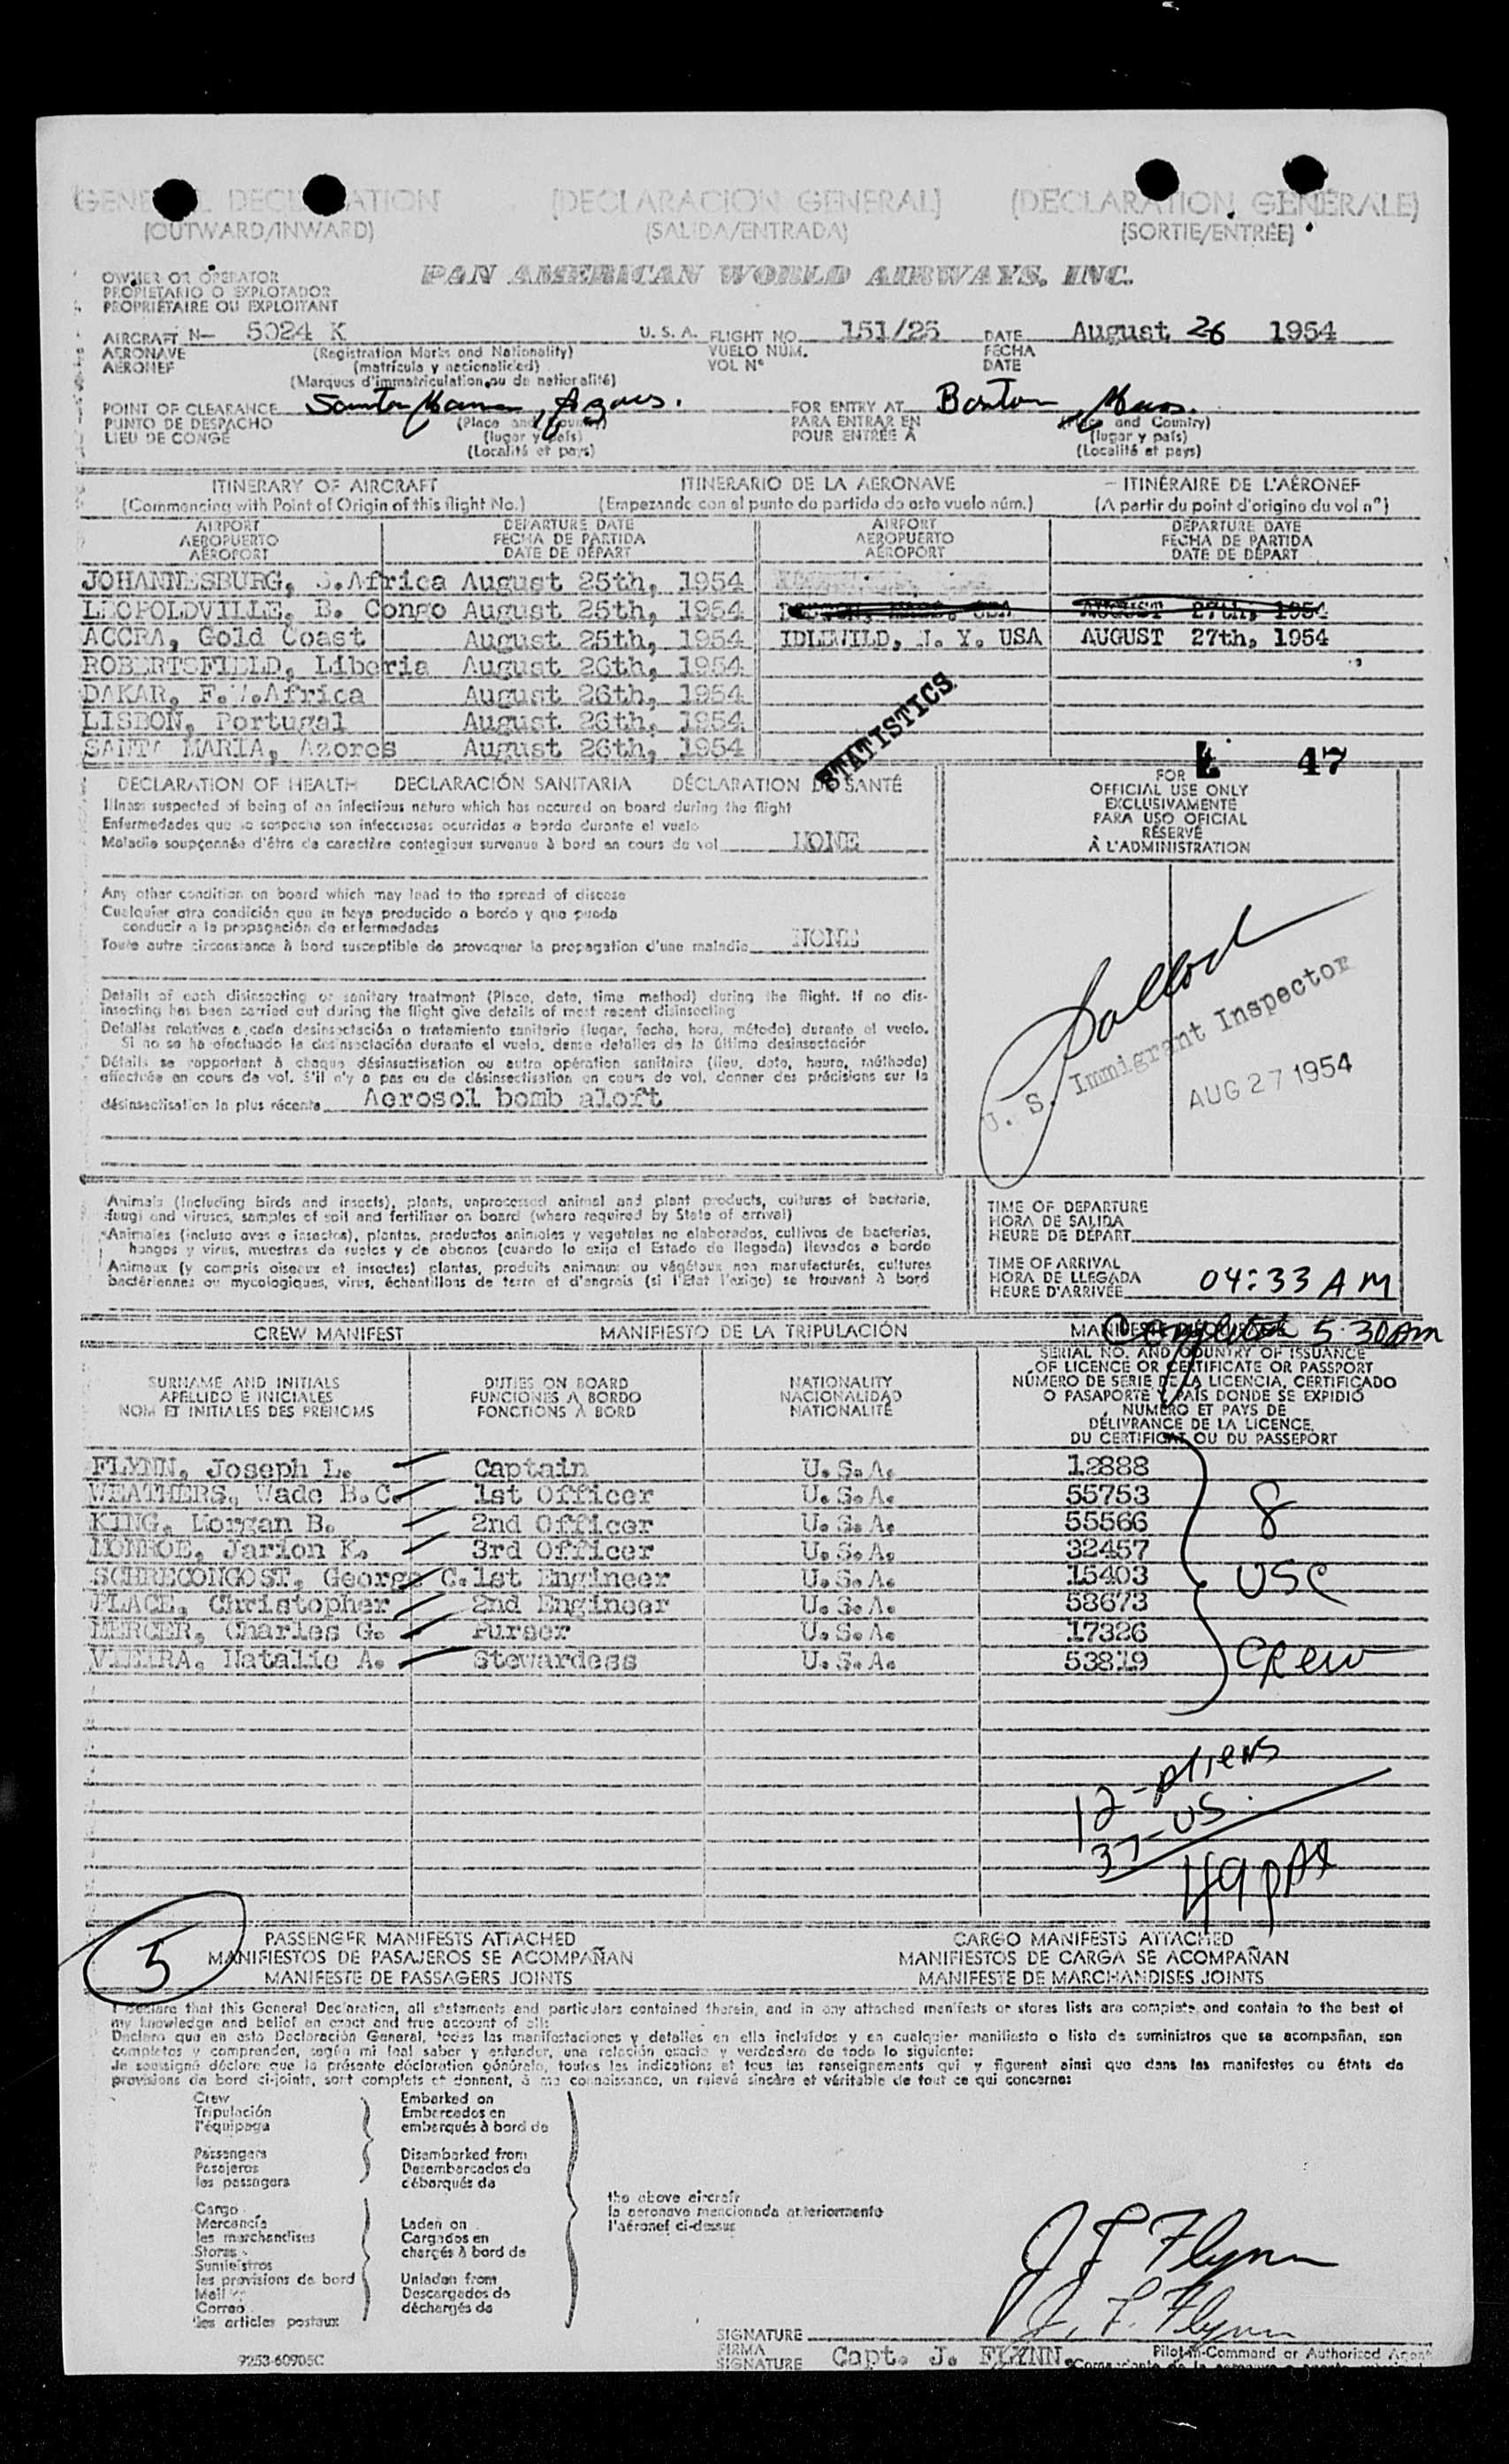 GENERAL DECLARATION (DECLARACION GENERAL) (DECLARATION GÉNÉRALE)
(OUTWARD/INWARD) (SALIDA/ENTRADA) (SORTIE/ENTRÉE)
OWNER OR OPERATOR PAN AMERICAN WORLD AIRWAYS, INC.
PROPIETARIO O EXPLOTADOR
PROPRIÉTAIRE OU EXPLOITANT
AIRCRAFT N- 5024 K U. S. A. FLIGHT NO. 151/25 DATE August 26 1954
AERONAVE (Registration Marks and Nationality) VUELO NUM. FECHA
AÉRONEF (matrícula y nacionalidad) VOL N° DATE
(Marques d'immatriculation ou de nationalité)
POINT OF CLEARANCE Santa Maria, Azores. FOR ENTRY AT Boston, Mass.
PUNTO DE DESPACHO (Place and Country) PARA ENTRAR EN (Place and Country)
LIEU DE CONGÉ (lugar y país) POUR ENTRÉE A (lugar y país)
(Localité et pays) (Localité et pays)
ITINERARY OF AIRCRAFT ITINERARIO DE LA AERONAVE – ITINÉRAIRE DE L'AÉRONEF
(Commencing with Point of Origin of this flight No.) (Empezando con el punto de partida de este vuelo núm.) (A partir du point d'origine du vol n°)
AIRPORT DEPARTURE DATE AIRPORT DEPARTURE DATE
AEROPUERTO FECHA DE PARTIDA AEROPUERTO FECHA DE PARTIDA
AÉROPORT DATE DE DÉPART AÉROPORT DATE DE DÉPART
JOHANNESBURG, S.Africa August 25th, 1954
LEOPOLDVILLE, B. Congo August 25th, 1954 BOSTON, MASS. USA AUGUST 27th, 1954
ACCRA, Gold Coast August 25th, 1954 IDLEWILD, N. Y. USA AUGUST 27th, 1954
ROBERTSFIELD, Liberia August 26th, 1954
DAKAR, F.W.Africa August 26th, 1954
LISBON, Portugal August 26th, 1954
SANTA MARIA, Azores August 26th, 1954
STATISTICS
47
DECLARATION OF HEALTH DECLARACIÓN SANITARIA DÉCLARATION DE SANTÉ FOR
Illness suspected of being of an infectious nature which has occured on board during the flight OFFICIAL USE ONLY
Enfermedades que se sospecha son infecciosas ocurridas a bordo durante el vuelo EXCLUSIVAMENTE
Maladie soupçonnée d'être de caractère contagieux survenue à bord en cours de vol NONE PARA USO OFICIAL
RÉSERVÉ
À L'ADMINISTRATION
Any other condition on board which may lead to the spread of disease
Cualquier otra condición que se haya producido a bordo y que pueda
conducir a la propagación de enfermedades
Toute autre circonstance à bord susceptible de provoquer la propagation d'une maladie NONE
Details of each disinsecting or sanitary treatment (Place, date, time method) during the flight. If no dis-
insecting has been carried out during the flight give details of most recent disinsecting
Detalles relativos a cada desinsectación o tratamiento sanitario (lugar, fecha, hora, método) durante el vuelo.
Si no se ha efectuado la desinsectación durante el vuelo, dense detalles de la última desinsectación
Détails se rapportant à chaque désinsectisation ou autre opération sanitaire (lieu, date, heure, méthode)
effectuée en cours de vol. S'il n'y a pas eu de désinsectisation en cours de vol, donner des précisions sur la
désinsectisation la plus récente Aerosol bomb aloft
U. S. Immigrant Inspector
AUG 27 1954
Animals (including birds and insects), plants, unprocessed animal and plant products, cultures of bacteria,
fungi and viruses, samples of soil and fertilizer on board (where required by State of arrival)
Animales (incluso aves e insectos), plantas, productos animales y vegetales no elaborados, cultivos de bacterias,
hongos y virus, muestras de suelos y de abonos (cuando lo exija el Estado de llegada) llevados a bordo
Animaux (y compris oiseaux et insectes) plantes, produits animaux ou végétaux non manufacturés, cultures
bactériennes ou mycologiques, virus, échantillons de terre et d'engrais (si l'État l'exige) se trouvant à bord
TIME OF DEPARTURE
HORA DE SALIDA
HEURE DE DÉPART
TIME OF ARRIVAL
HORA DE LLEGADA 04:33 AM
HEURE D'ARRIVÉE
Completed 5:30am
CREW MANIFEST MANIFIESTO DE LA TRIPULACIÓN
SERIAL NO. AND COUNTRY OF ISSUANCE
OF LICENCE OR CERTIFICATE OR PASSPORT
SURNAME AND INITIALS DUTIES ON BOARD NATIONALITY NÚMERO DE SERIE DE LA LICENCIA, CERTIFICADO
APELLIDO E INICIALES FUNCIONES A BORDO NACIONALIDAD O PASAPORTE Y PAÍS DONDE SE EXPIDIÓ
NOM ET INITIALES DES PRÉNOMS FONCTIONS À BORD NATIONALITÉ NUMÉRO ET PAYS DE
DÉLIVRANCE DE LA LICENCE,
DU CERTIFICAT OU DU PASSEPORT
FLYNN, Joseph L. Captain U.S.A. 12888
WEATHERS, Wade B.C. 1st Officer U.S.A. 55753
KING, Morgan B. 2nd Officer U.S.A. 55566
MONROE, Jarion K. 3rd Officer U.S.A. 32457
SCHRECONGOST, George C. 1st Engineer U.S.A. 15403
PLACE, Christopher 2nd Engineer U.S.A. 58673
MERCER, Charles G. Purser U.S.A. 17326
VIEIRA, Natalie A. Stewardess U.S.A. 53819
8
USC
Crew
12-Aliens
37-US.
49 pax
5
PASSENGER MANIFESTS ATTACHED CARGO MANIFESTS ATTACHED
MANIFIESTOS DE PASAJEROS SE ACOMPAÑAN MANIFIESTOS DE CARGA SE ACOMPAÑAN
MANIFESTE DE PASSAGERS JOINTS MANIFESTE DE MARCHANDISES JOINTS
I declare that this General Declaration, all statements and particulars contained therein, and in any attached manifests or stores lists are complete, and contain to the best of
my knowledge and belief an exact and true account of all:
Declaro que en esta Declaración General, todas las manifestaciones y detalles en ella incluídos y en cualquier manifiesto o lista de suministros que se acompañan, son
completos y comprenden, según mi leal saber y entender, una relación exacta y verdadera de todo lo siguiente:
Je soussigné déclare que la présente déclaration générale, toutes les indications et tous les renseignements qui y figurent ainsi que dans les manifestes ou états de
provisions de bord ci-joints, sont complets et donnent, à ma connaissance, un relevé sincère et véritable de tout ce qui concerne:
Crew Embarked on
Tripulación Embarcados en
l'équipage embarqués à bord de
Passengers Disembarked from
Pasajeros Desembarcados de
les passagers débarqués de
the above aircraft
la aeronave mencionada anteriormente
l'aéronef ci-dessus
Cargo
Mercancía Laden on
les marchandises Cargados en
Stores chargés à bord de
Suministros
les provisions de bord Unladen from
Mail Descargados de
Correo déchargés de
les articles postaux
J F Flynn
J. F. Flynn
SIGNATURE
FIRMA Capt. J. FLYNN. Pilot-in-Command or Authorized Agent
SIGNATURE
9253-60905C